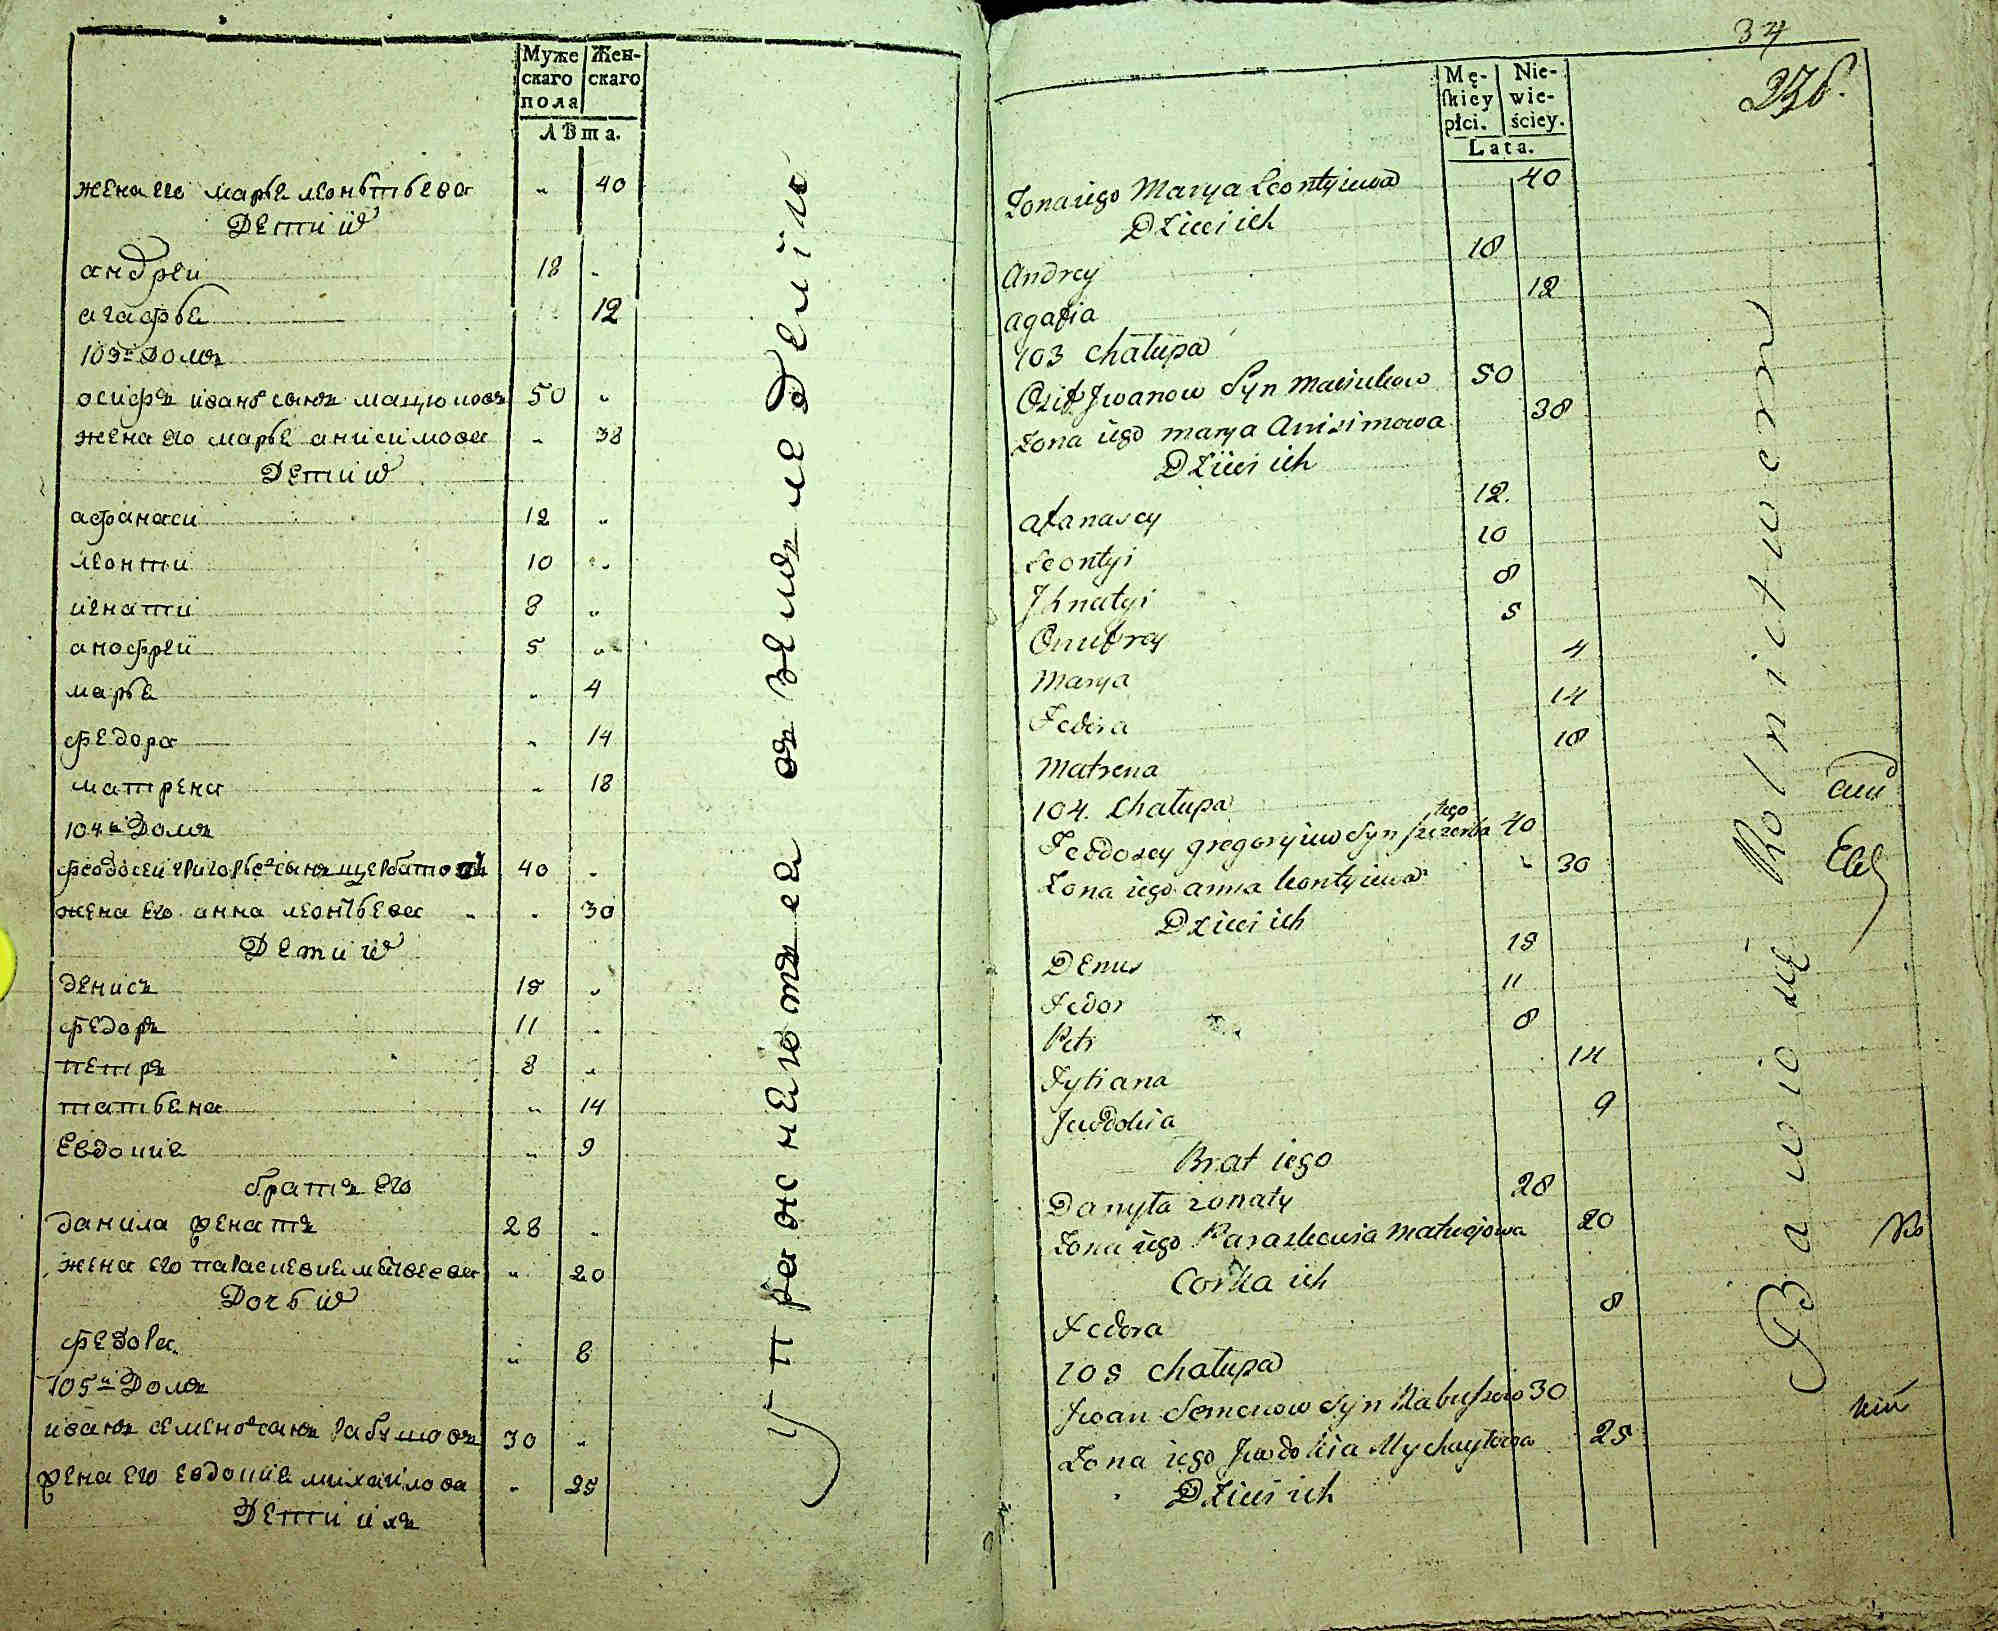 Муже
скаго
пола
Жен-
скаго
Лѣта.
жена его марья леонтьева „ 40
Дети их
андреи 18 „
агафья 12
103й Домъ
осифъ иванов сынъ мацюковъ 50 „
жена его марья анисимова „ 38
Дети их
афанаси 12 „
леонти 10 „
игнати 8 „
анофрей 5 „
марья „ 4
федора „ 14
матрена „ 18
104й Домъ
феодосей григорьев сынъ 40 „
жена его анна леонтьева „ 30
Дети их
денисъ 15 „
федоръ 11 „
петръ 8 „
татьяна „ 14
Евдокия „ 9
братъ его
данила женатъ 28 „
жена его параскевия матвеева „ 20
Дочь их
федора „ 8
105й Домъ
иванъ семенов сынъ рабушовъ 30 „
жена его евдокия михаилова „ 25
Дети ихъ
Упражняются въ земледелии
34
Mę-
skiey
płci.
Nie-
wie-
ściey.
Lata.
Żona iego Marya Leontyiewa 40
Dzieci ich
Andrey 18
agafia 12
103 Chałupa
Osif Jwanow Syn Maciukow 50
Żona iego marya Anisimowa 38
Dzieci ich
afanasey 12.
Leontyi 10
Jhnatyi 8
Onufrey 5
Marya 4
Fedora 14
Matrena 18
104. Chałupa
Feodosey gregoryiew Syn 40
Żona iego anna leontyiewa „ 30
Dzieci ich
Denis 15
Fedor 11
Petr 8
Tytiana 14
Jewdokia 9
Brat iego
Danyła zonaty 28
Żona iego Paraskewia Matwejowa 20
Corka ich
Fedora 8
105 Chałupa
Jwan Semenow Syn Rabuszow 30
Żona iego Jewdokia Mychayłowa 25
Dzieci ich
Bawią się Rolnictwem